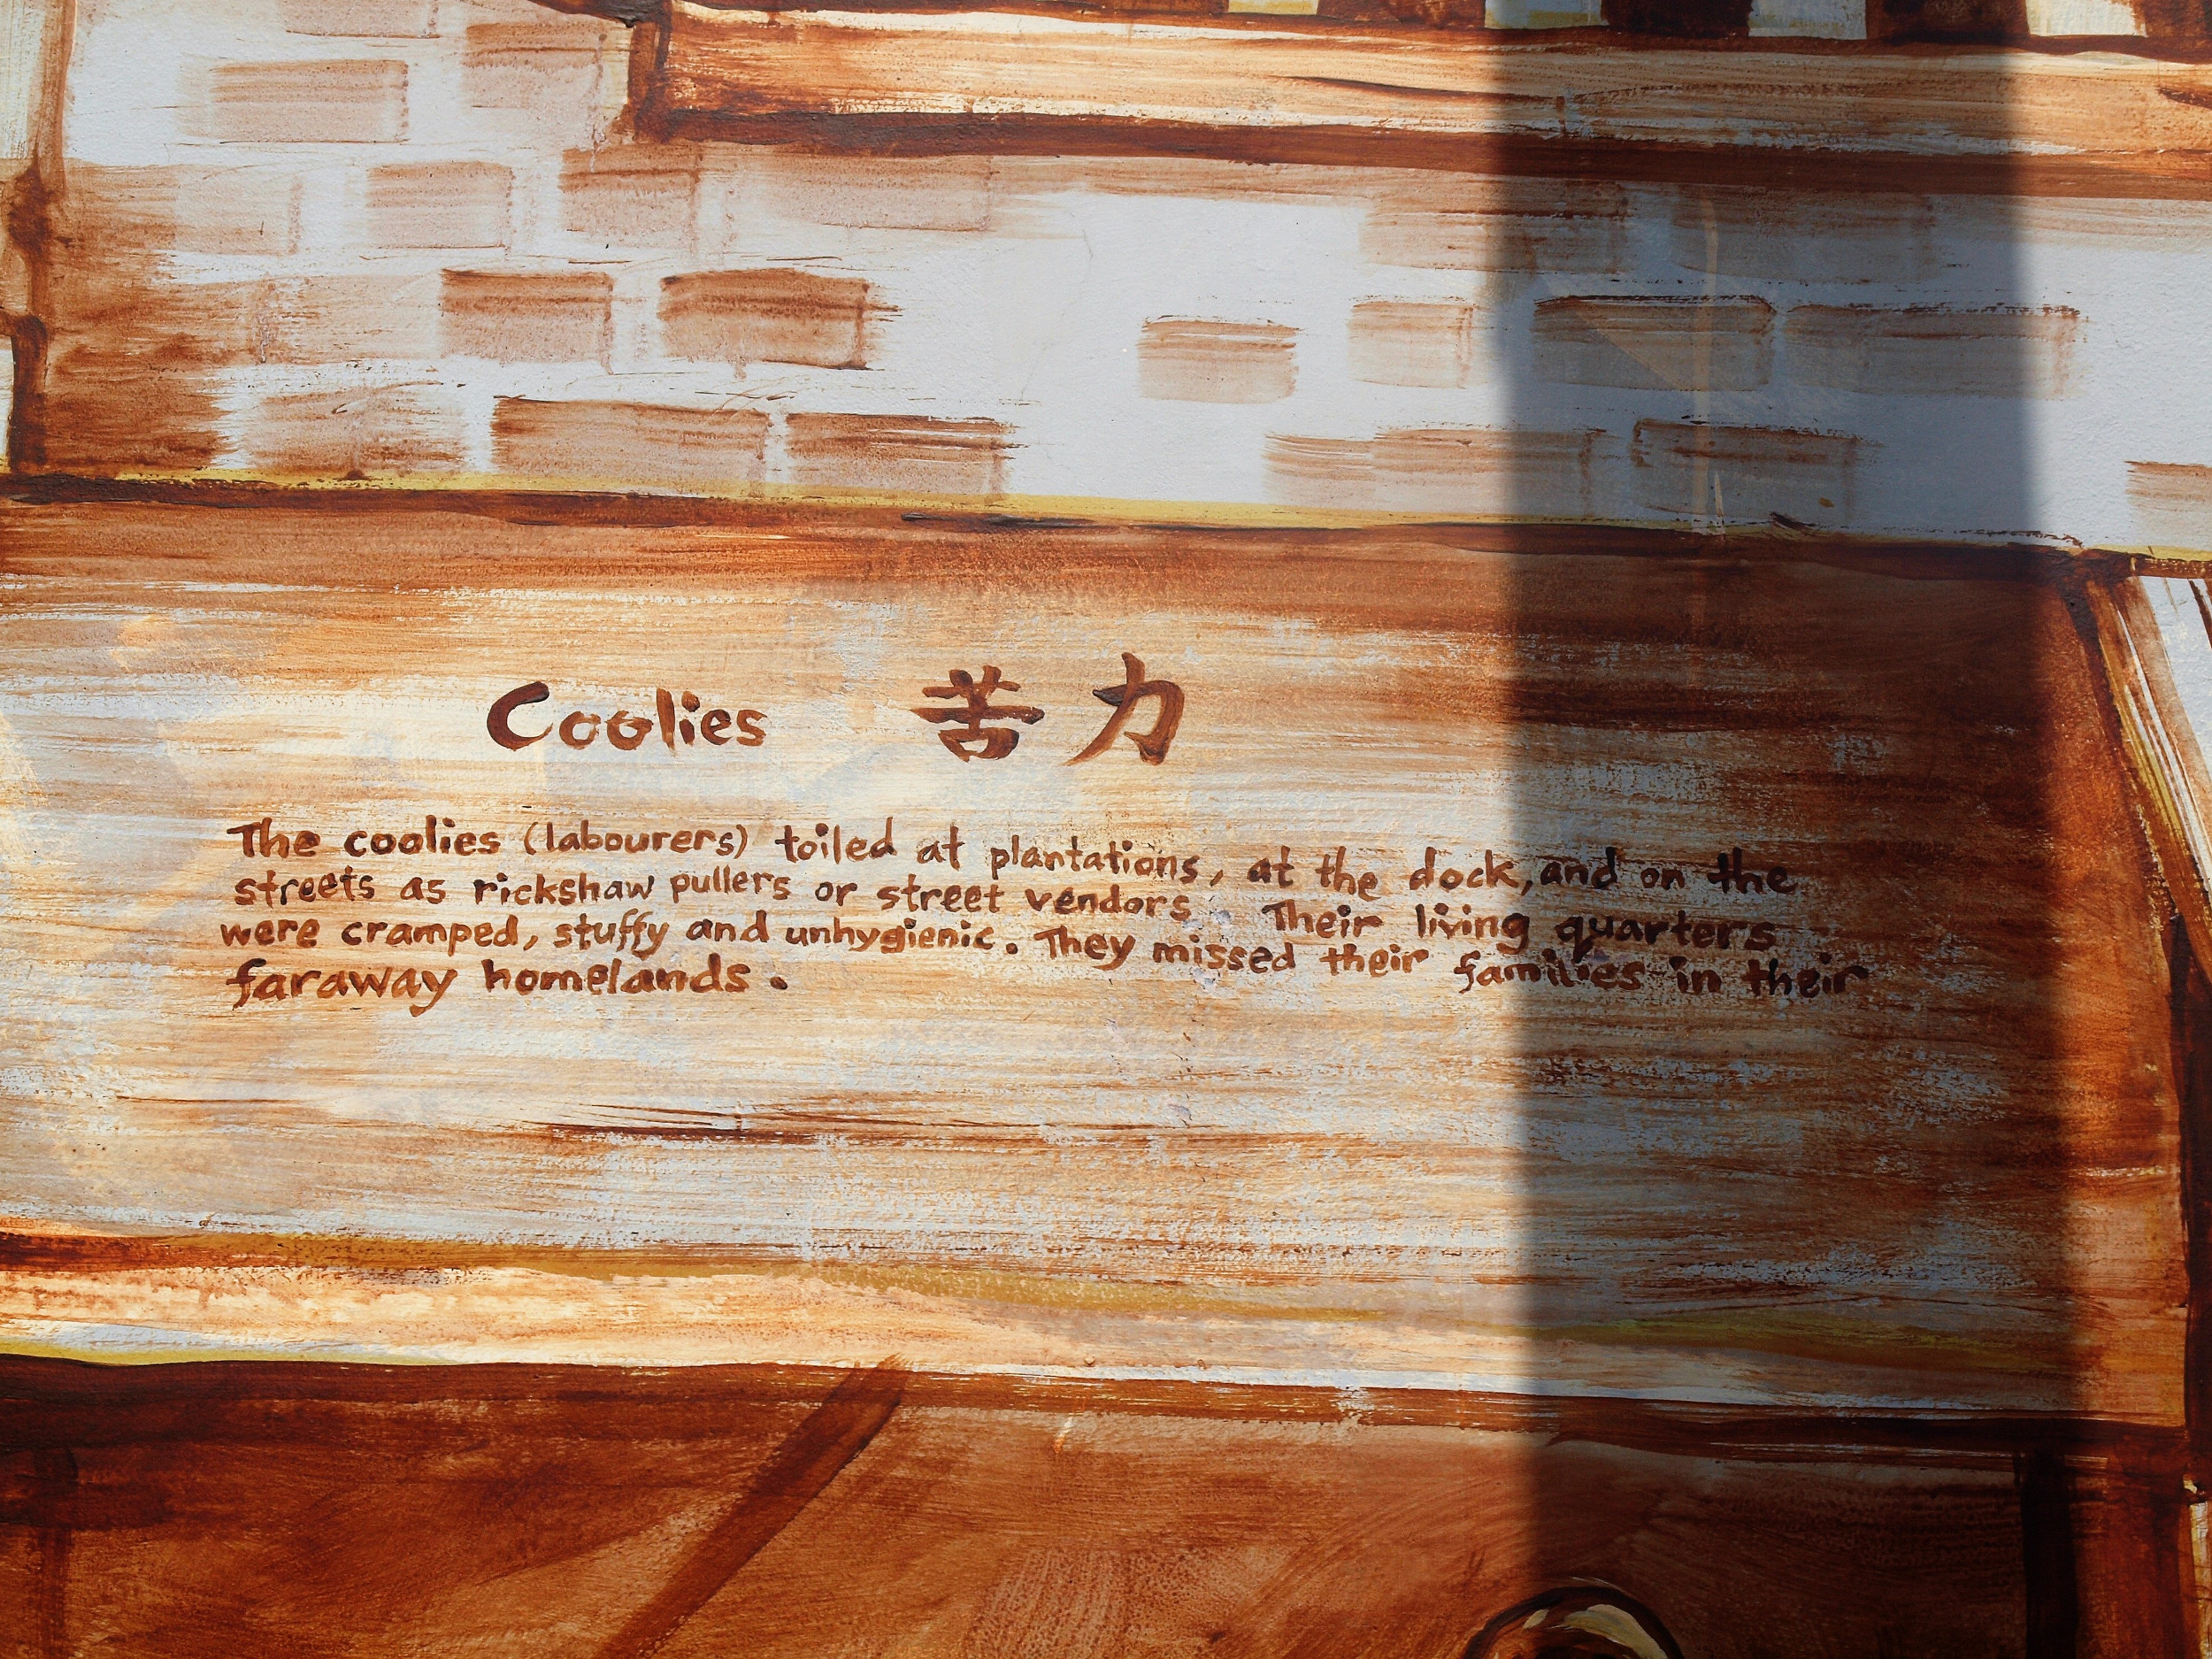 Coolies 苦力
The coolies (labourers) toiled at plantations, at the dock, and on the
streets as rickshaw pullers or street vendors. Their living quarters
were cramped, stuffy and unhygienic. They missed their families in their
faraway homelands.